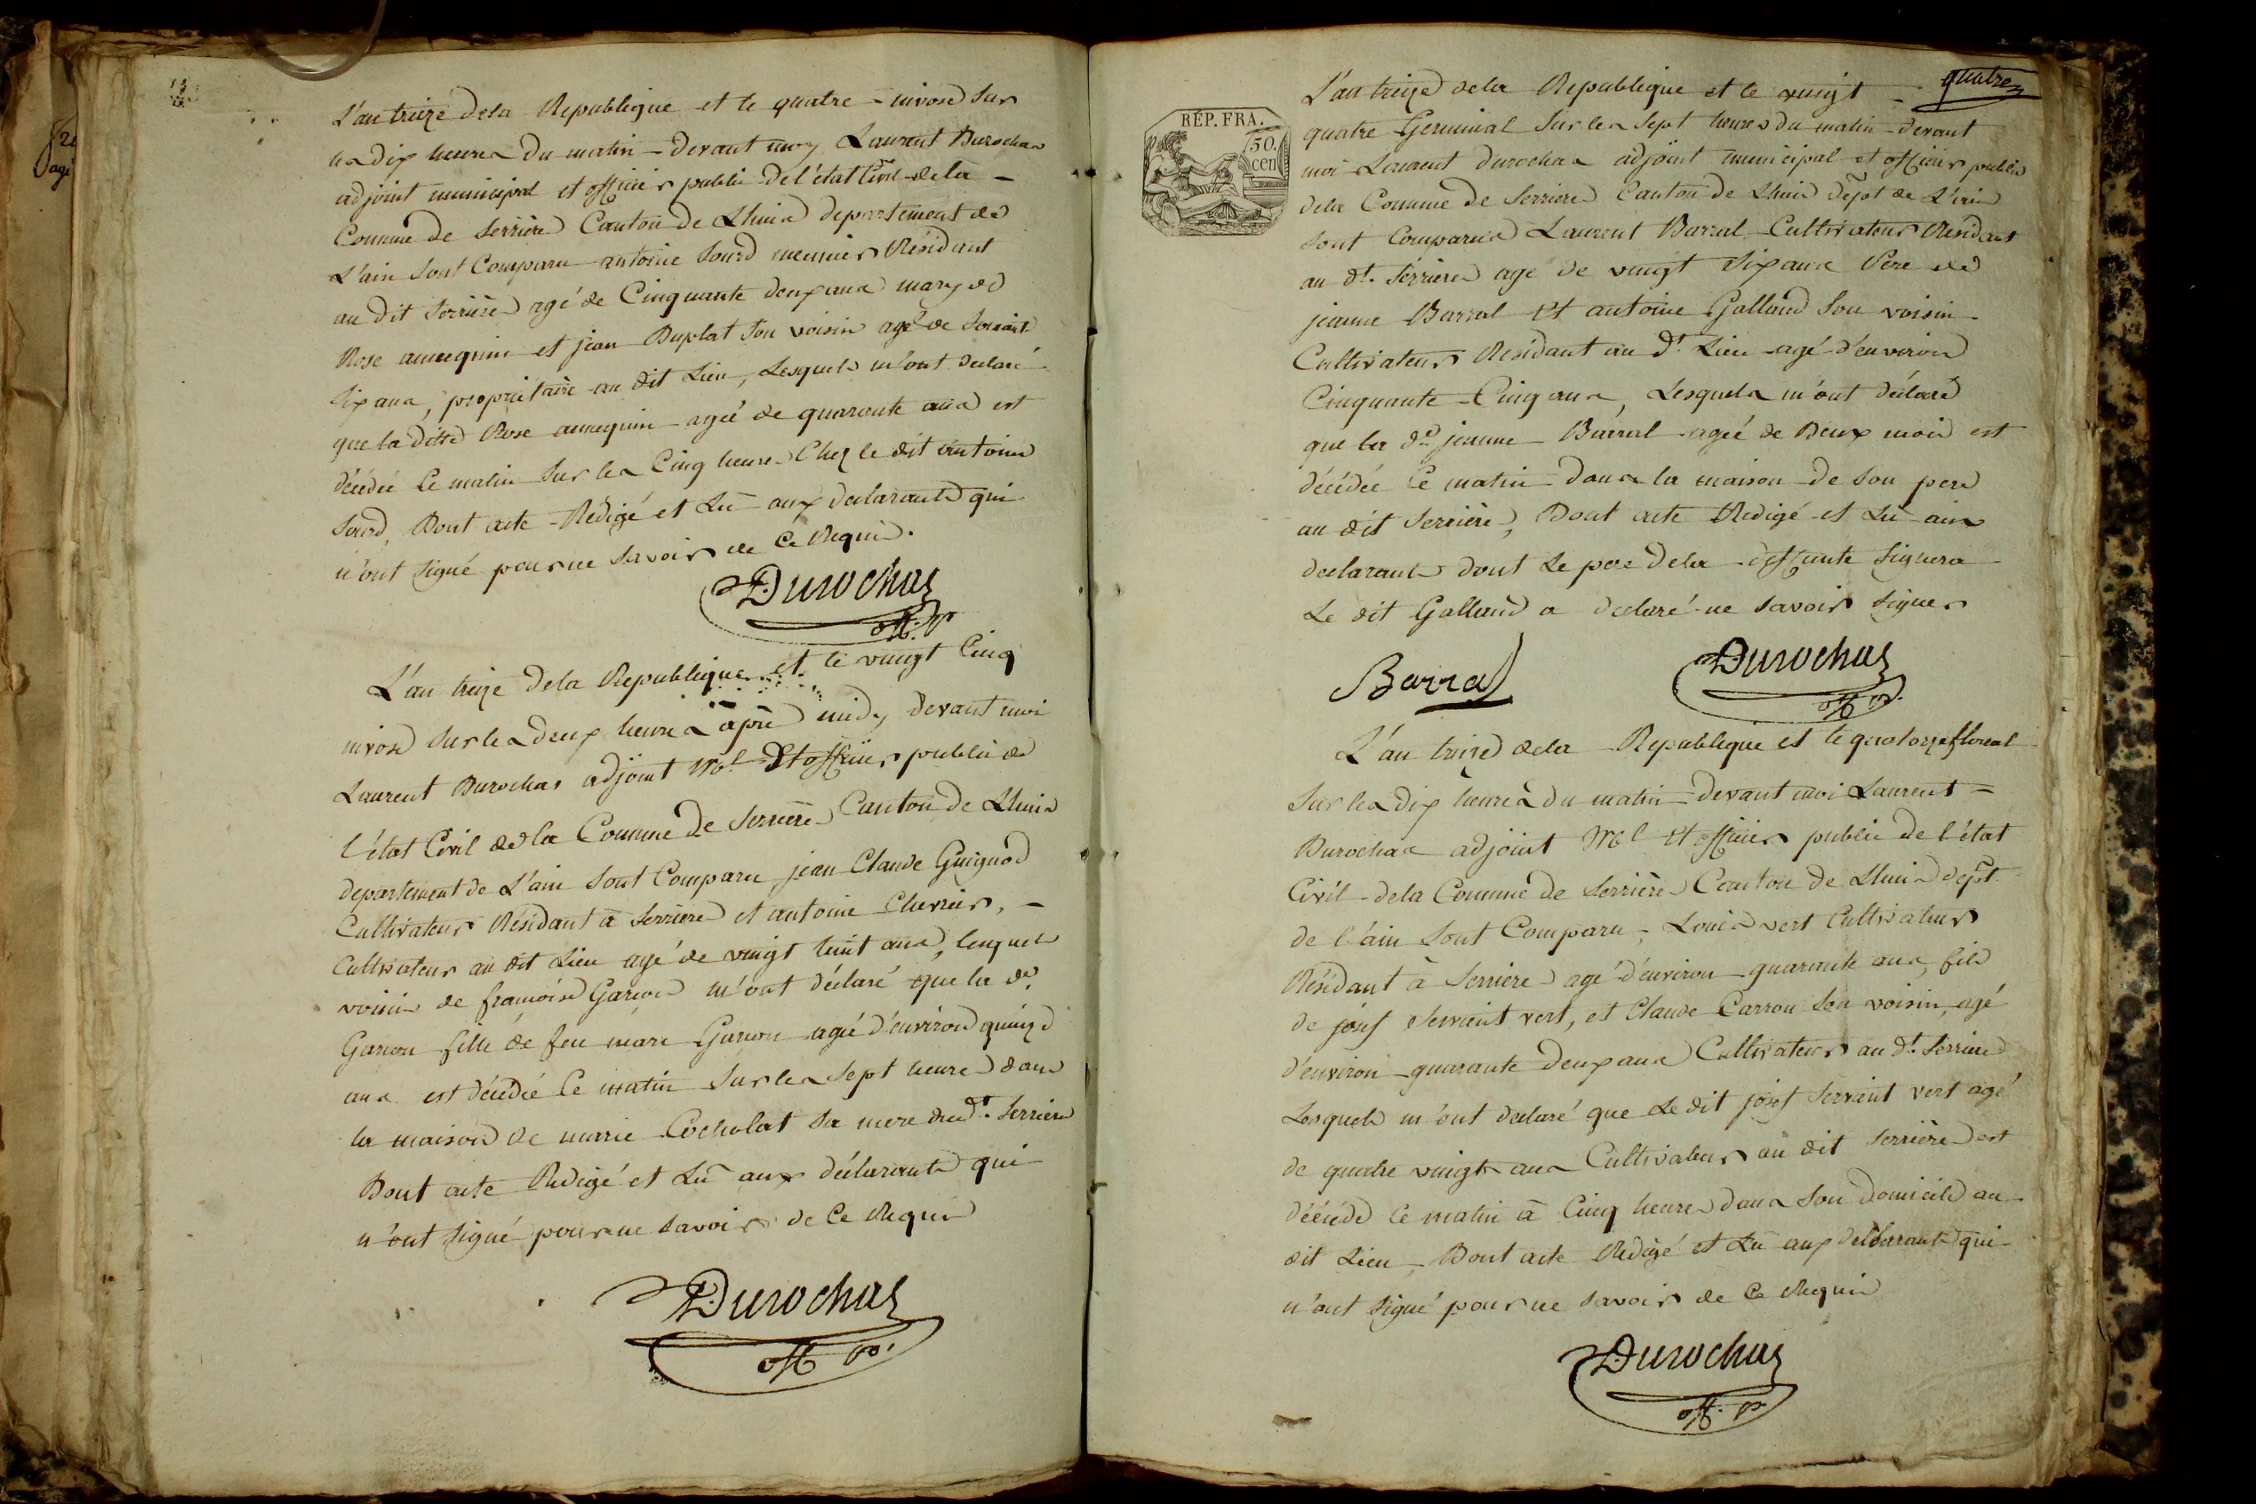 L'an treize de la Republique et le quatre nivose sur
les dix heures du matin devant moy Laurent Durochas
adjoint municipal et officier public de l'état Civil de la
Commune de Serriere Canton de Lhuis departement de
L'ain sont Comparu antoine Sourd meunier Résidant
au dit Serriere agé de Cinquante deux ans mary de
Rose annequin et jean Duplat son voisin agé de soixante
six ans, propriétaire au dit Lieu, Lesquels m'ont declaré
que la ditte Rose annequin agée de quarante ans est
décédée Ce matin sur les Cinq heures Chez le dit antoine
Sourd, Dont acte Redigé et Lu aux declarants qui
n'ont signé pour ne savoir de Ce Requis.
Durochas
off. p.
L'an treize de la Republique et le vingt Cinq
nivose sur les deux heures après midy devant moi
Laurent Durochas adjoint Mel Et officier public de
l'état Civil de la Commune de Serriere Canton de Lhuis
departement de L'ain sont Comparu jean Claude Guignod
Cultivateur Résidant à Serriere et antoine Chevrier,
Cultivateur au dit Lieu agé de vingt huit ans, lesquels
voisin de françoise Garion m'ont déclaré que la de
Garion fille de feu marc Garion agée d'environ quinze
ans est décédée Ce matin sur les sept heures dans
la maison de marie Cocholat sa mere du dt. Serriere
Dont acte Redigé et Lu aux déclarants qui
n'ont signé pour ne savoir de Ce Requis
Durochas
off. p.
quatre
RÉP. FRA.
50.
cen
L'an treize de la Republique et le vingt
quatre Germinal sur les sept heures du matin devant
moi Laurent durochas adjoint municipal et officier public
de la Commune de Serriere Canton de Lhuis dept de L'ain
sont Comparus Laurent Barral Cultivateur Résidant
au dt. Serriere agé de vingt six ans Père de
jeanne Barral et antoine Galland son voisin
Cultivateur Résidant au dt Lieu agé d'environ
Cinquante Cinq ans, Lesquels m'ont déclaré
que la de jeanne Barral agée de Deux mois est
décédée ce matin dans la maison de son pere
au dit Serriere, Dont acte Redigé et Lu aux
declarants dont Le pere de la deffunte signera
Le dit Galland a declaré ne savoir signer
Barral
Durochas
off. p.
L'an treize de la Republique et le quatorze floreal
sur les dix heures du matin devant moi Laurent
Durochas adjoint Mel Et officier public de l'état
Civil de la Commune de Serriere Canton de Lhuis dept
de l'ain sont Comparu Louis vert Cultivateur
Résidant à Serriere agé d'environ quarante ans, fils
de josef Servant vert, et Claude Carron son voisin, agé
d'environ quarante deux ans Cultivateur au dt. Serriere
Lesquels m'ont declaré que Le dit josef Servant vert agé
de quatre vingts ans Cultivateur au dit Serriere est
décédé Ce matin à Cinq heures dans son Domicile au
dit Lieu Dont acte Redigé et Lu aux declarants qui
n'ont signé pour ne savoir de Ce Requis
Durochas
off. p.